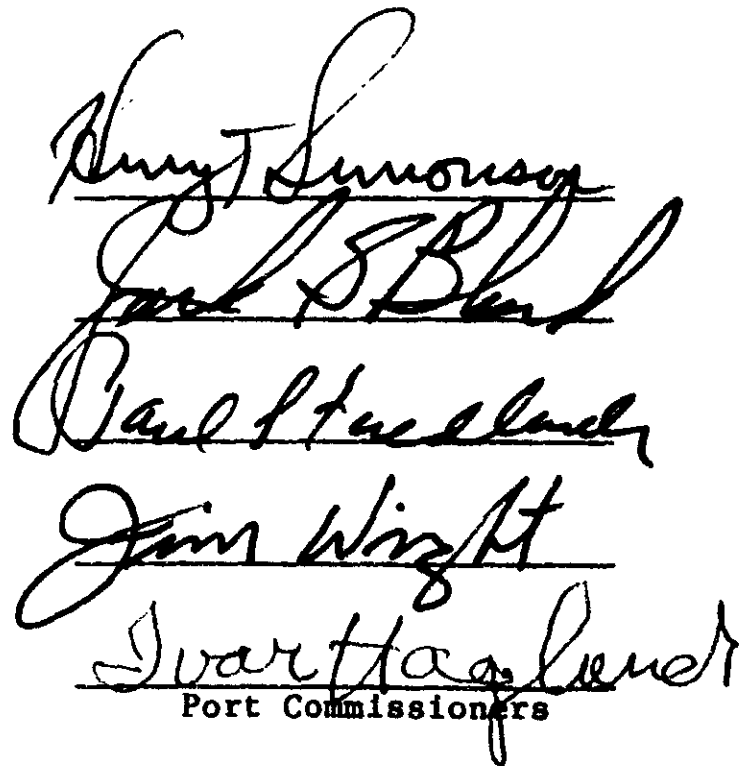 Henry T Simonson
Jack S Block
Paul S Friedlander
Jim Wright
Ivar Haglund
Port Commissioners